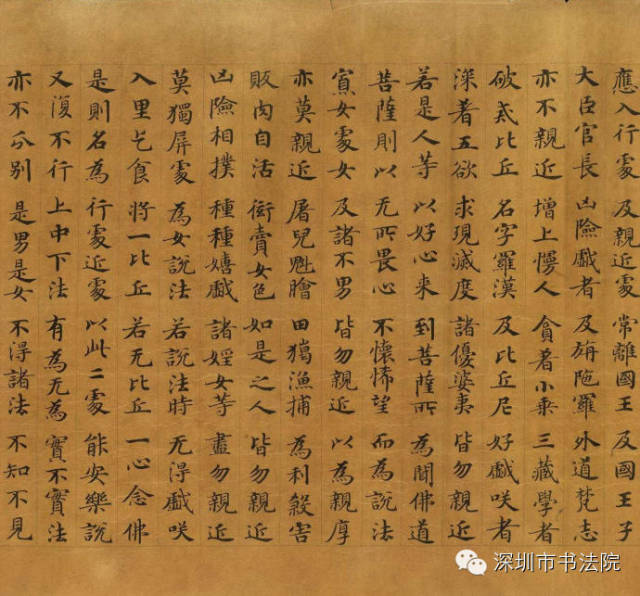 應入行處 及親近處 常離國王 及國王子
大臣官長 凶險戲者 及旃陁羅 外道梵志
亦不親近 增上慢人 貪著小乘 三藏學者
破戒比丘 名字羅漢 及比丘尼 好戲咲者
深著五欲 求現滅度 諸優婆夷 皆勿親近
若是人等 以好心來 到菩薩所 為聞佛道
菩薩則以 无所畏心 不懷悕望 而為說法
寡女處女 及諸不男 皆勿親近 以為親厚
亦莫親近 屠兒魁膾 田獵漁捕 為利煞害
販肉自活 衒賣女色 如是之人 皆勿親近
凶險相撲 種種嬉戲 諸婬女等 盡勿親近
莫獨屏處 為女說法 若說法時 无得戲咲
入里乞食 將一比丘 若无比丘 一心念佛
是則名為 行處近處 以此二處 能安樂說
又復不行 上中下法 有為无為 實不實法
亦不分別 是男是女 不得諸法 不知不見
深圳市书法院